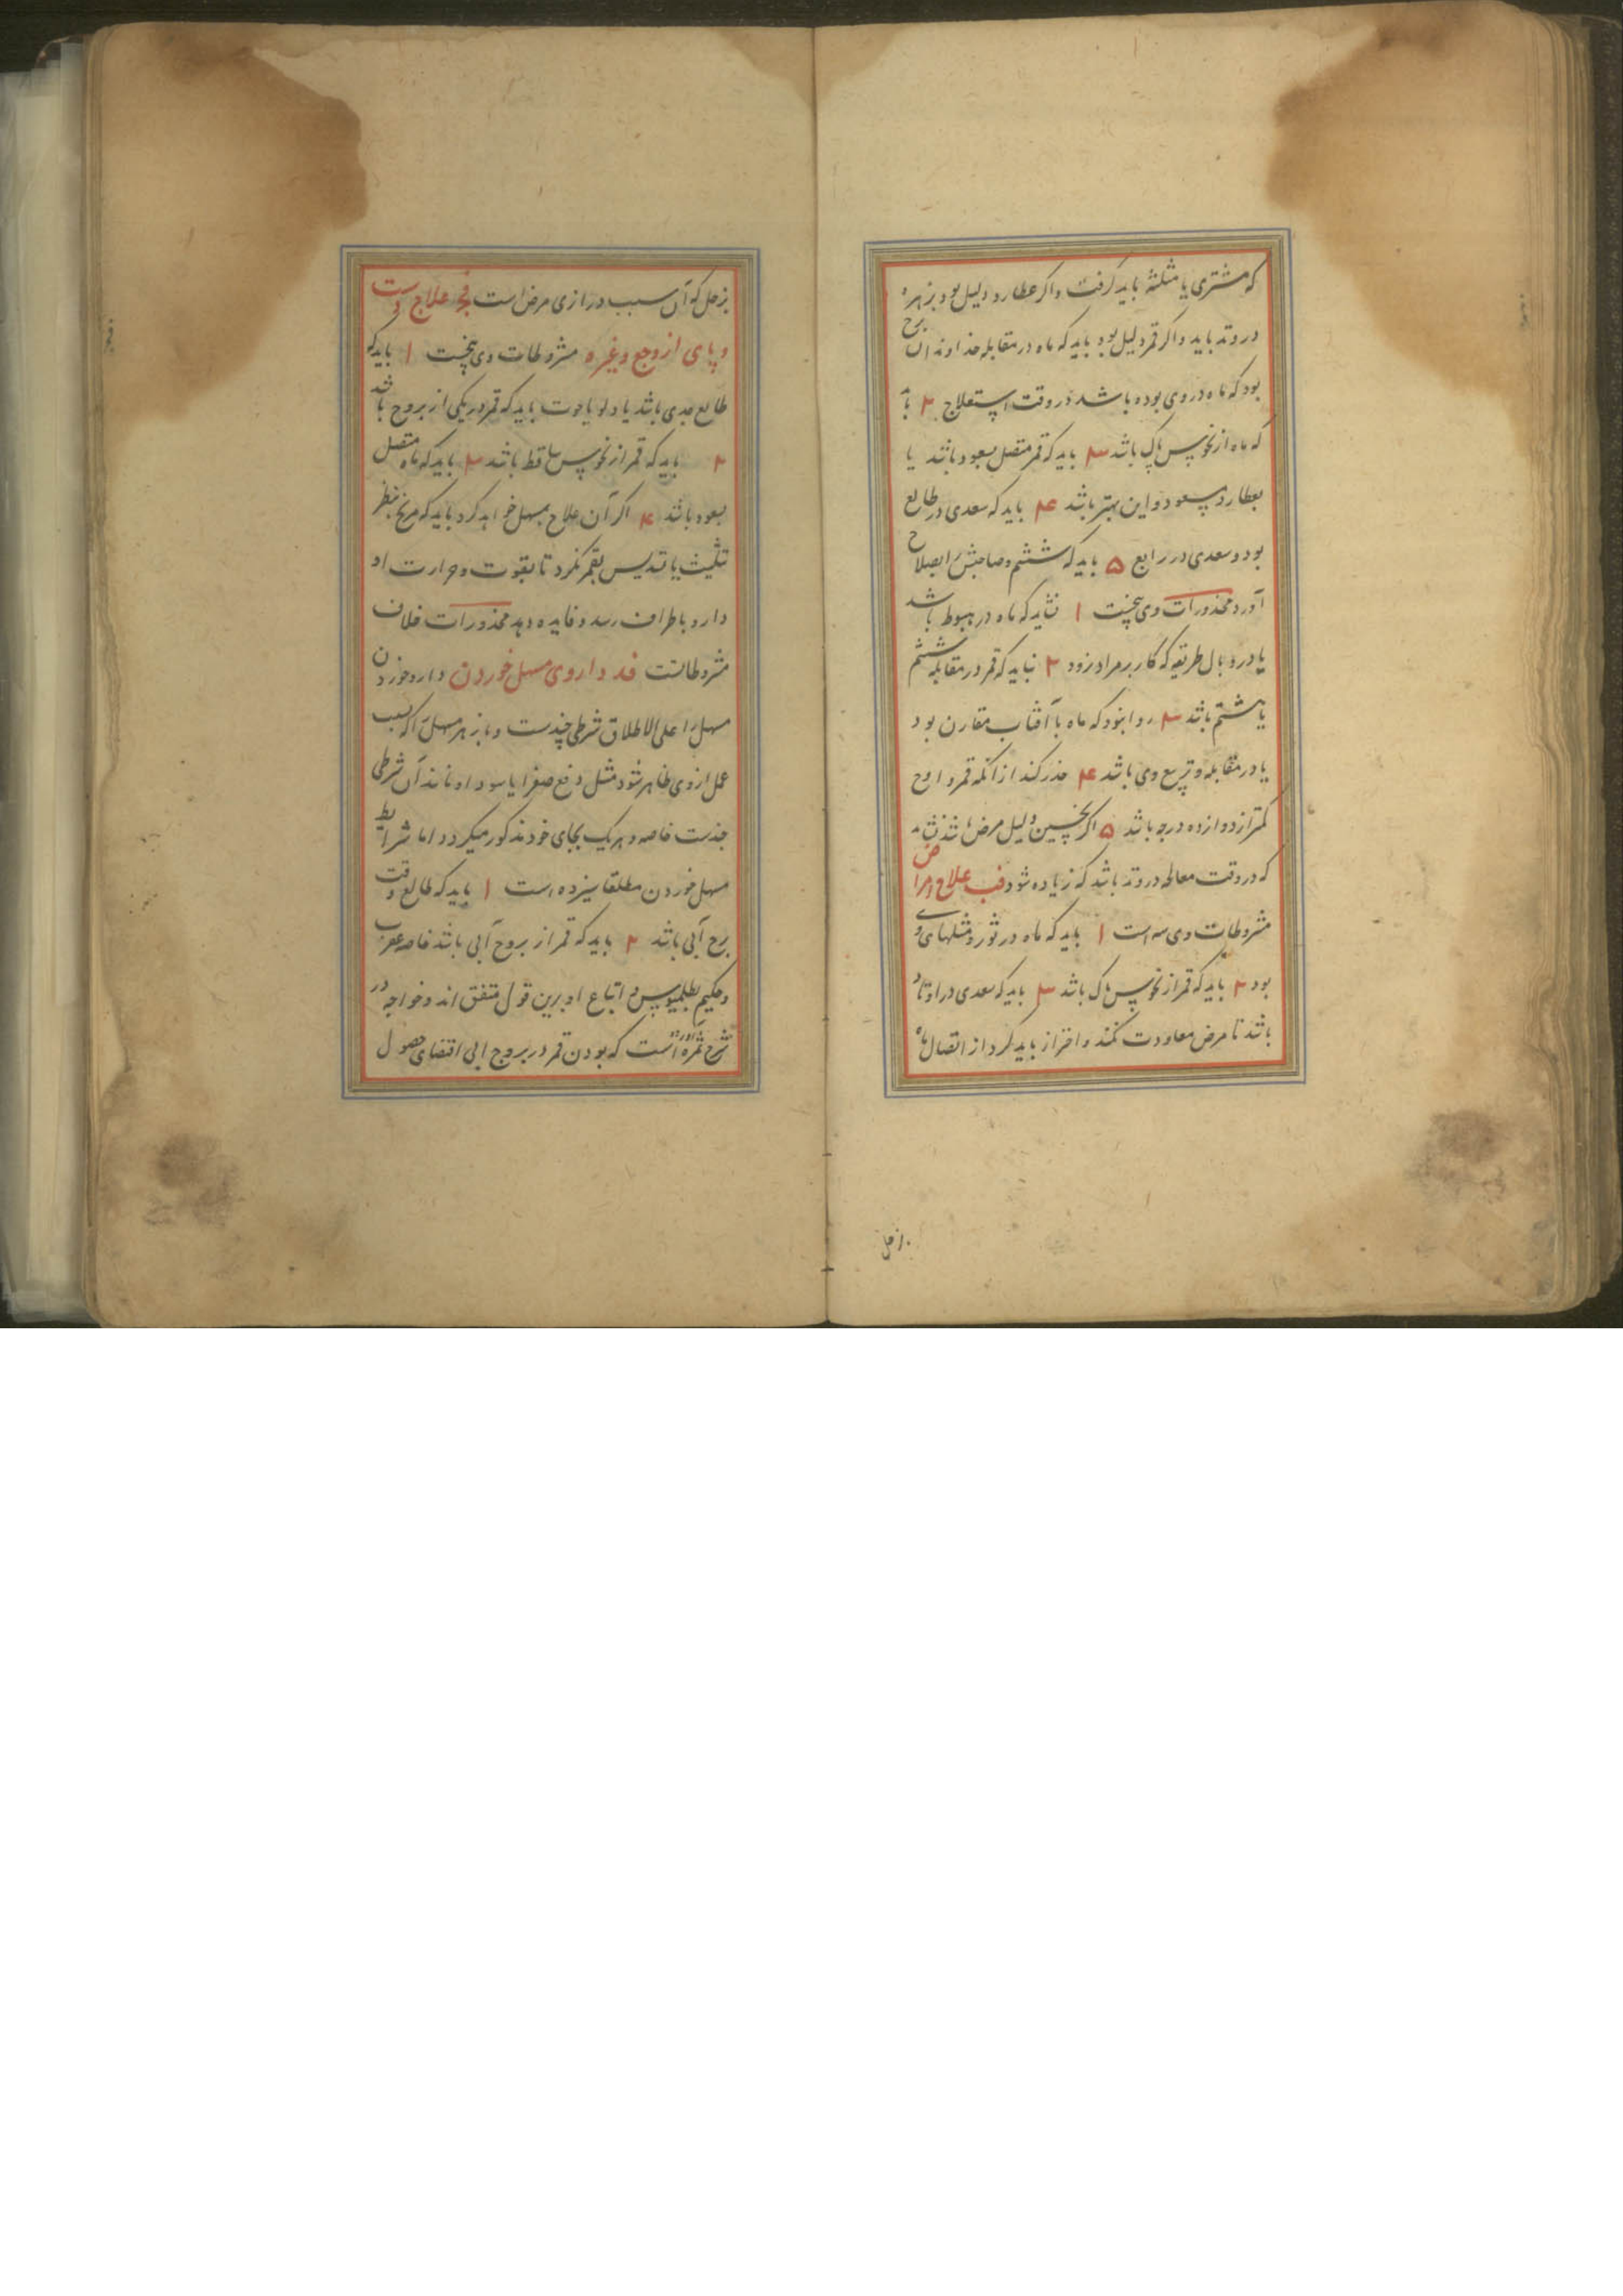 که مشتری یا مثلثهٔ باید گرفت و اکر عطارد دلیل بود بزهره
در وتد باید و اکر قمر دلیل بود باید که ماه در مقابله خداوند آن برج
بود که ماه در وی بوده باشد در وقت استعلاج ۲ باید
که ماه از نحوس پاک باشد ۳ باید که قمر متصل بسعود باشد یا
بعطارد مسعود و این بهتر باشد ۴ باید که سعدی در طالع
بود و سعدی در رابع ۵ باید که ششم و صاحبش را بصلاح
آورد محذورات وی پنجست ۱ نشاید که ماه در هبوط باشد
یا در وبال طریقه که کار بر مراد نرود ۲ نباید که قمر در مقابله ششم
یا هشتم باشد ۳ روا نبود که ماه با آفتاب مقارن بود
یا در مقابله و تربیع وی باشد ۴ حذر کند از انکه قمر و اوج
کمتر از دوازده درجه باشد ۵ اکر نحسین دلیل مرض باشند نشاید
که در وقت معالجه در وتد باشد که زیاده شود فب علاج امراض
مشروطات وی سه است ۱ باید که ماه در ثور و مثلهای وی
بود ۲ باید که قمر از نحوس پاک باشد ۳ باید که سعدی در اوتاد
باشد تا مرض معاودت نکند و احتراز باید کرد از اتصال ماه
بزحل
بزحل که آن سبب درازی مرض است فج علاج دست
و پای از وجع و غیره مشروطات وی پنجست ۱ باید که
طالع جدی باشد یا دلو یا حوت باید که قمر در یکی از بروج باشد
۲ باید که قمر از نحوس ساقط باشد ۳ باید که ماه متصل
بسعود باشد ۴ اکر آن علاج بمسهل خواهد کرد باید که مریخ بنظر
تثلیث یا تسدیس بقمر نکرد تا بقوت و حرارت او
دارو باطراف رسد و فایده دهد محذورات خلاف
مشروطاتست فد داروی مسهل خوردن دارو خوردن
مسهل را علی الاطلاق شرطی چندست و باز هر مسهل را که سبب
عمل از وی ظاهر شود مثل دفع صفرا یا سودا و مانند آن شرطی
چندست خاصه و هر یک بجای خود مذکور میکردد اما شرایط
مسهل خوردن مطلقا سیزده است ۱ باید که طالع وقت
برج آبی باشد ۲ باید که قمر از بروج آبی باشد خاصه عقرب
و حکیم بطلمیوس و اتباع او برین قول متفق اند و خواجه در
شرح ثمره آورده است که بودن قمر در بروج ابی اقتضای حصول